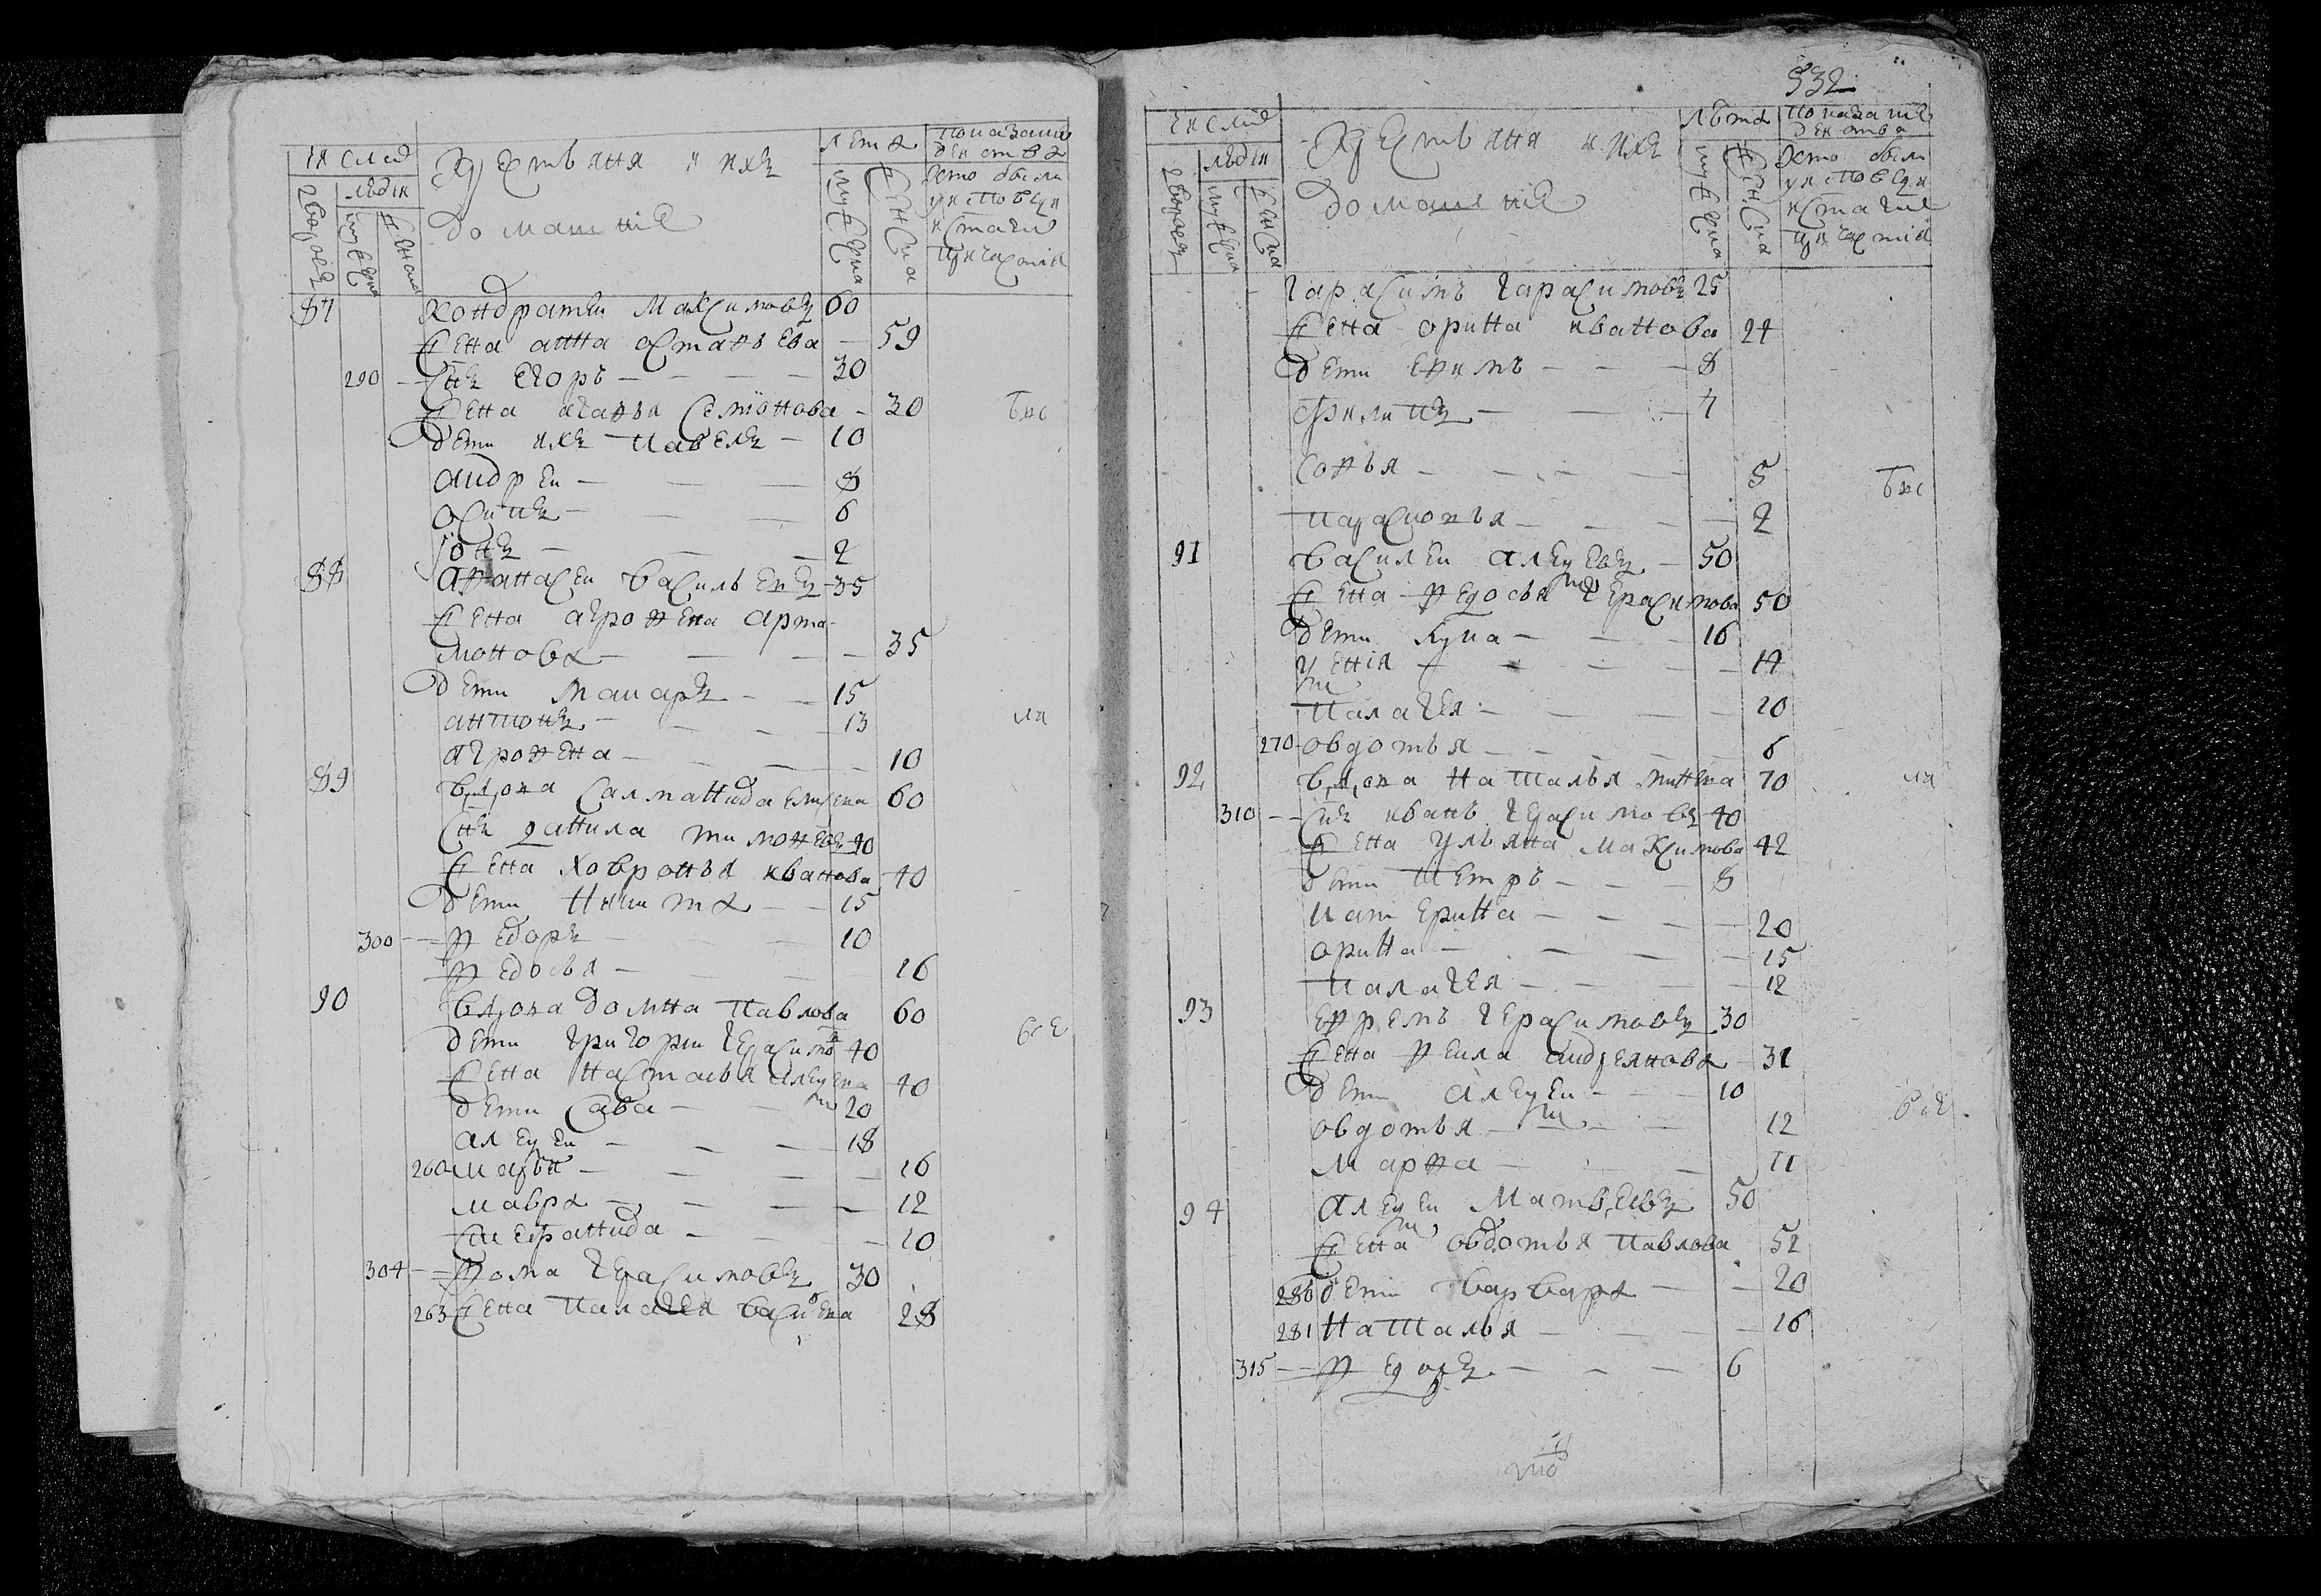 число
дворовъ
людей
мужеска
женска
Крестьяня и ихъ
домашние
лета
мужеска
женска
показание
действа
хто были
у исповеди
и святаго
причастия
87 Кондратей Максимовъ 60
жена анна остафьева 59
290 сынъ егоръ 30
жена агафья семионова 30
дети ихъ павелъ 10
андрей 8
осипъ 6
ионъ 2
88 афанасей васильевъ 35
жена агрофена арта-
монова 35
дети макаръ 15
антонъ 13
агрофена 10
89 вдова саломанида 60
сынъ данила тимофеевъ 40
жена ховронья иванова 40
дети никита 15
300 федоръ 10
федосья 16
90 вдова домна павлова 60
дети григореи герасимов 40
жена настасья алексеева 40
дети сава 20
алексеи 18
260 марья 16
мавра 12
степанида 10
304 фома герасимовъ 30
263 жена палагея василева 28
532
число
дворовъ
людей
мужеска
женска
Крестьяня и ихъ
домашние
лета
мужеска
женска
показание
действа
хто были
у исповеди
и святаго
причастия
гарасимъ гарасимовъ 25
жена орина иванова 24
дети ефимъ 8
филипъ 4
софья 5
парасковья 2
91 василеи алексеевъ 50
жена федосья герасимова 50
дети лука 16
ксения 14
палагея 20
270 овдотья 6
92 вдова наталья 70
310 сынъ иванъ герасимовъ 40
жена ульяна максимова 42
дети петръ 8
катерина 20
орина 15
палагея 12
93 ефремъ герасимовъ 30
жена фекла андреянова 31
дети алексеи 10
овдотья 12
марфа 11
94 алексеи матвеевъ 50
жена овдотья павлова 52
280 дети варвара 20
281 наталья 16
315 федоръ 6